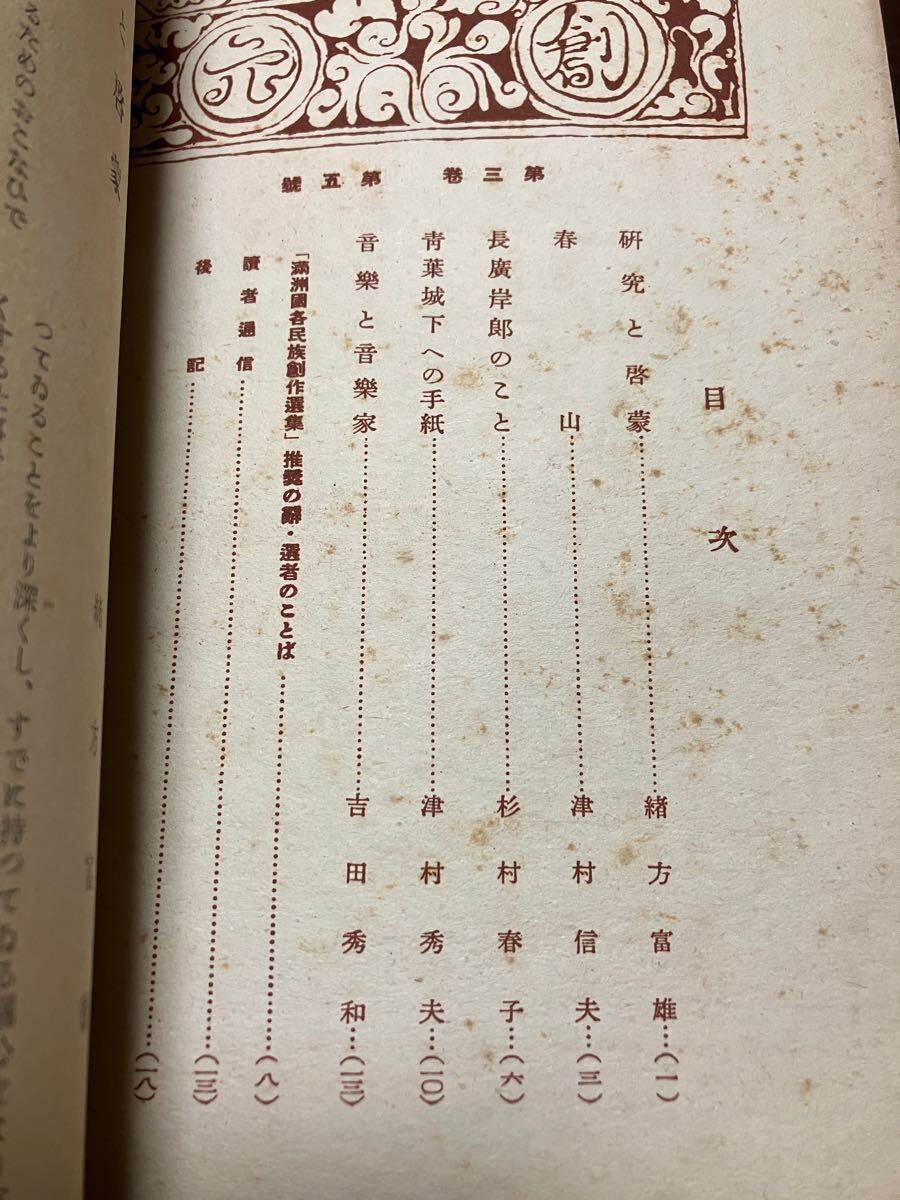 創元
第三卷 第五號
目次
研究と啓蒙……緒方富雄…(一)
春山……津村信夫…(三)
長廣岸郎のこと……杉村春子…(六)
靑葉城下への手紙……津村秀夫…(一〇)
音樂と音樂家……吉田秀和…(一三)
「滿洲國各民族創作選集」推奬の辭・選者のことば……(八)
讀者通信……(一三)
後記……(一八)
つてゐることをより深くし、すでに持つてゐる
緒方富